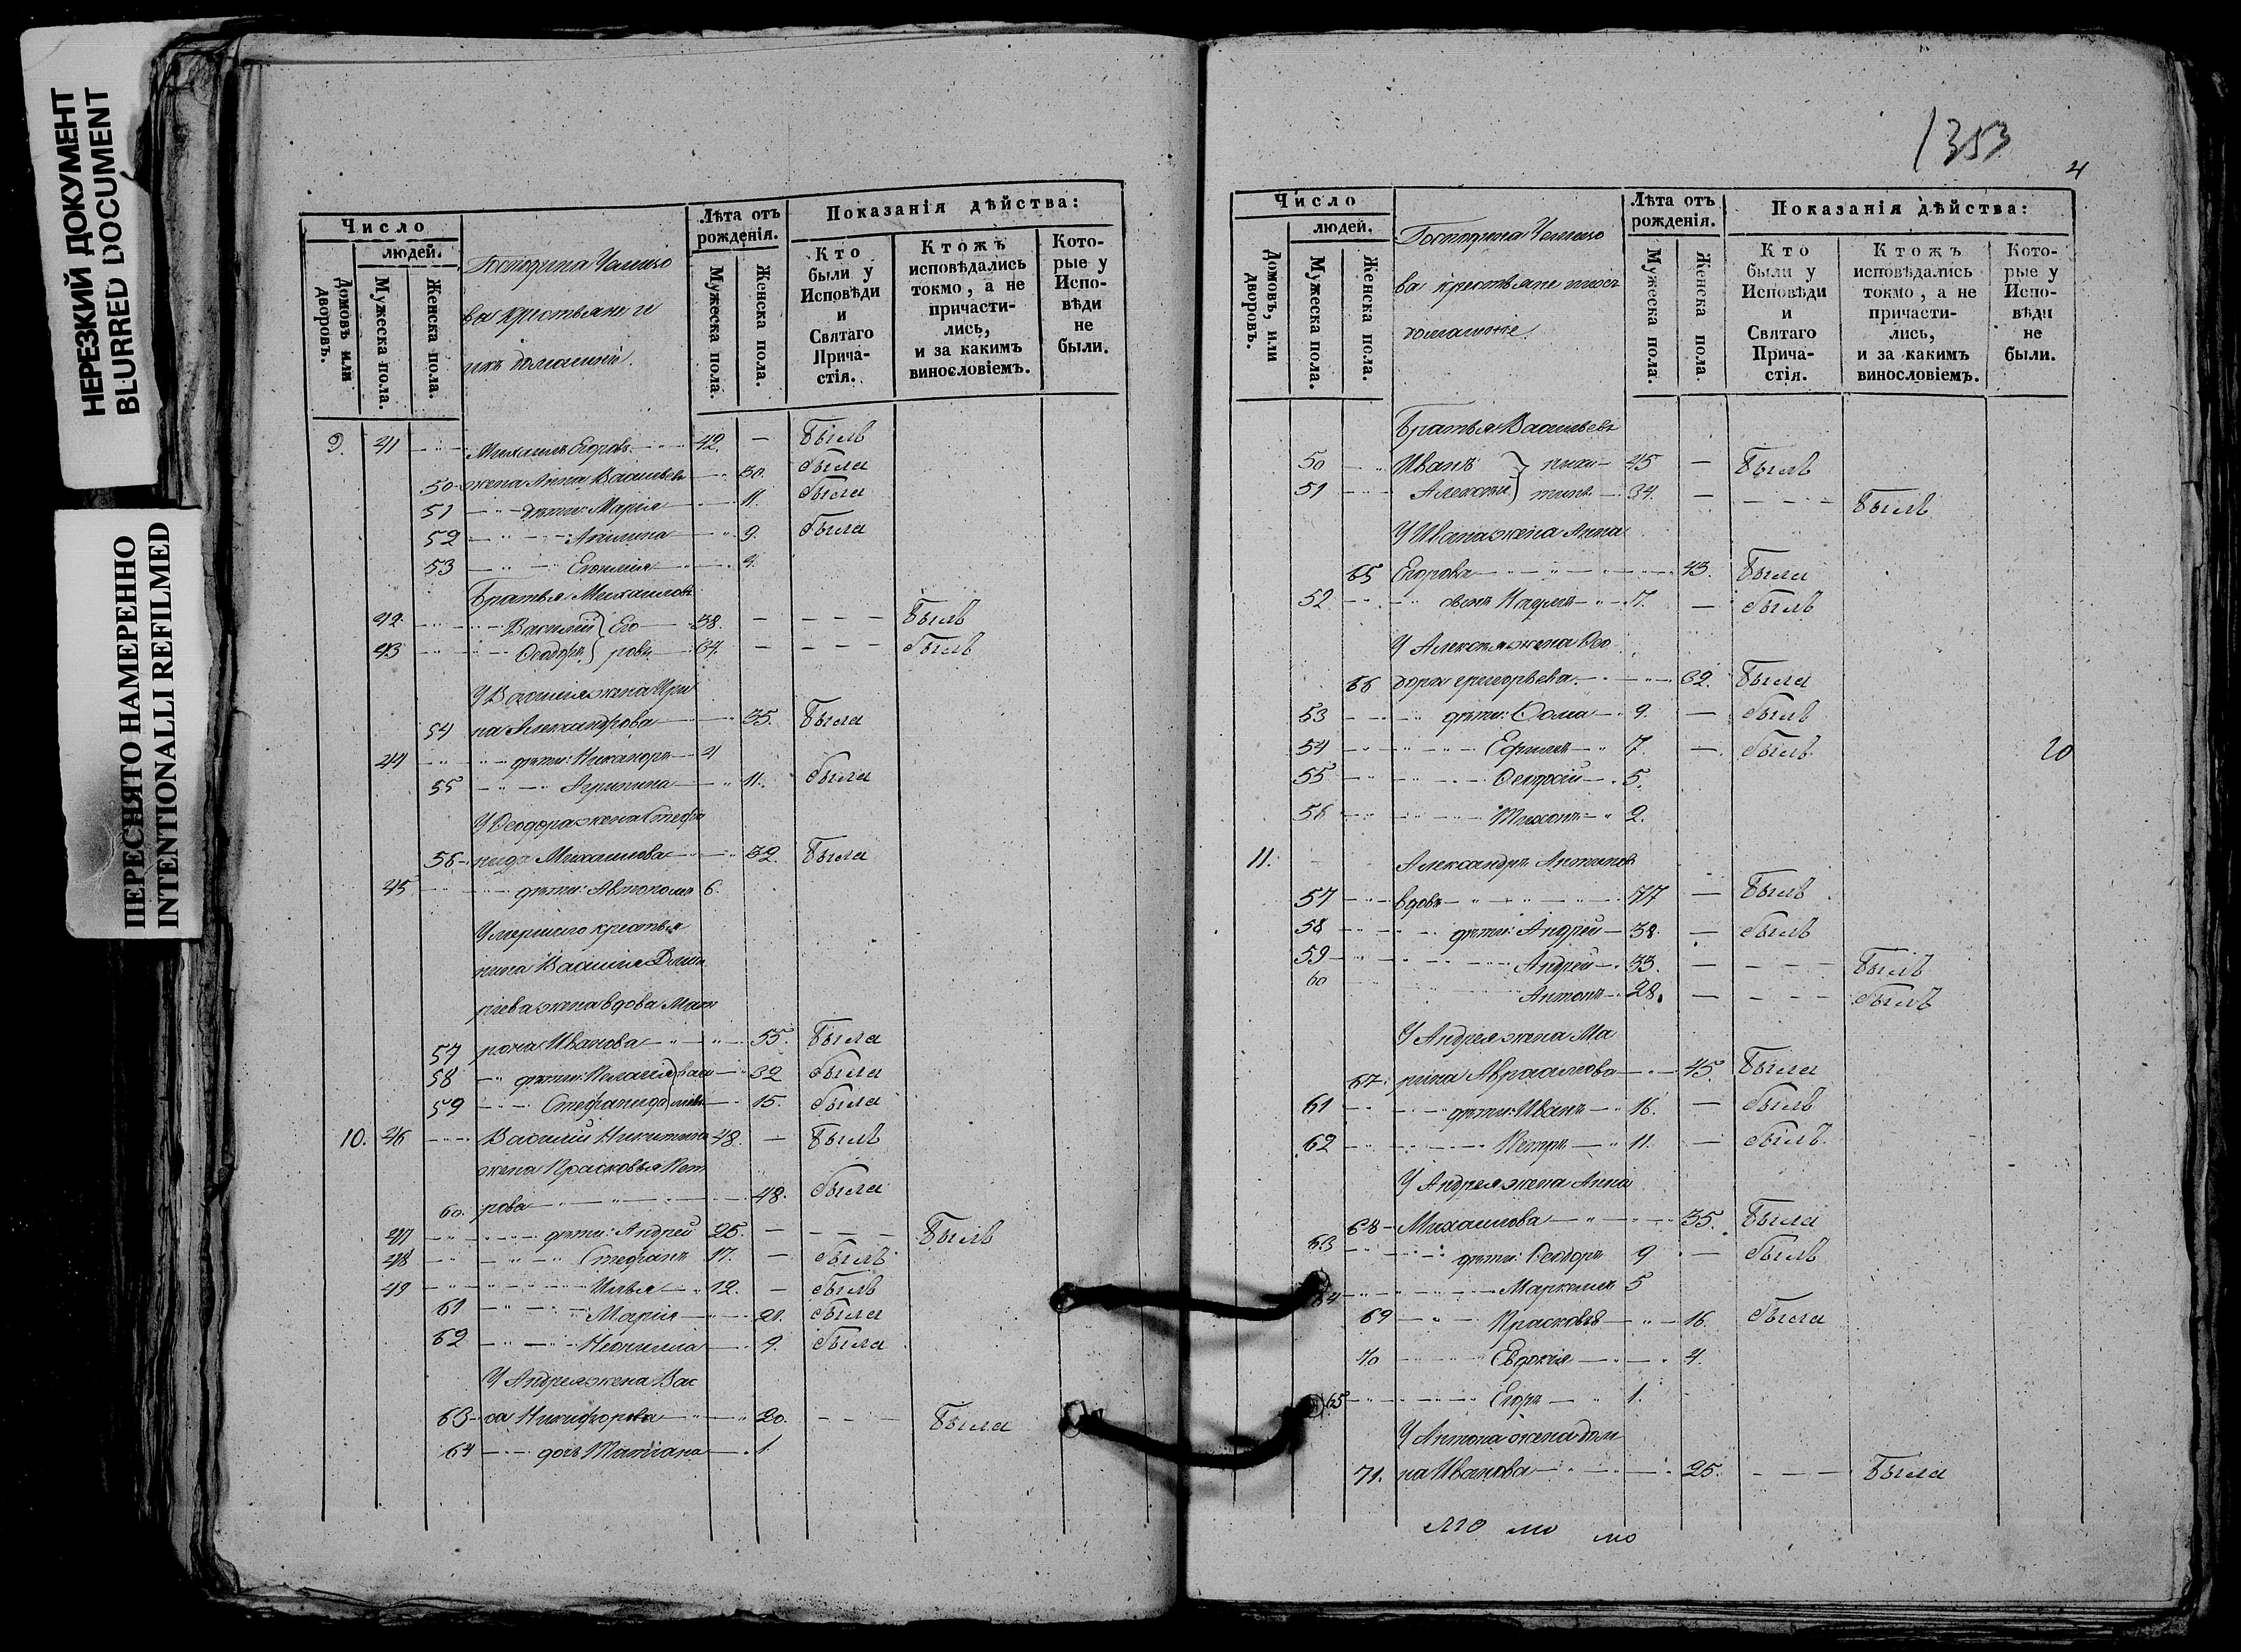 НЕРЕЗКИЙ ДОКУМЕНТ
BLURRED DOCUMENT
ПЕРЕСНЯТО НАМЕРЕННО
INTENTIONALLI REFILMED
Число
людей.
Домовъ или дворовъ.
Мужеска пола.
Женска пола.
Господина
крестьяне и
ихъ домашніи.
Лѣта отъ рожденія.
Мужеска пола.
Женска пола.
Показанія дѣйства:
Кто были у Исповѣди и Святаго Прича-стія.
Ктожъ исповѣдались токмо, а не причасти-лись, и за какимъ винословіемъ.
Кото-рые у Испо-вѣди не были.
9. 41 Михаилъ Егоровъ 42. — Былъ
50 жена Анна Васильева 30. была
51 дѣти: Марія 11. была
52 Акилина 9. была
53 4.
Братья Михаиловы
42 Василій } Его 38. — — — — Былъ
43 Ѳеодоръ } ровы 34. — — — — былъ
У Василія жена Ири
54 на Александрова 35. Была
44 дѣти: Никаноръ 4
55 Агрипина 11. была
У Ѳеодора жена Стефа
56 нида Михаилова 32. Была
45 дѣти: Автономъ 6.
Умершаго крестья
нина Василія Дмит
ріева жена вдова Мат
57 рона Иванова 55. Была
58 дѣти: Пелагія } Васи 32 была
59 Стефанида } 15. была
10. 46 Василій Никитинъ 48. — Былъ
жена Прасковья Пет
60. рова 48. была
47 дѣти: Андрей 25. — — — — Былъ
48 Стефанъ 17. — былъ
49 Илья 12. — былъ
61 Марія 21. была
62 Неонилла 9. была
У Андрея жена Вас
63 са Никифорова 20. — — — Была
64 дочь Татіана 1.
1353
4
Число
людей.
Домовъ, или дворовъ.
Мужеска пола.
Женска пола.
Господина
крестьяне
домашніе.
Лѣта отъ рожденія.
Мужеска пола.
Женска пола.
Показанія дѣйства:
Кто были у Исповѣди и Святаго Прича-стія.
Ктожъ исповѣдались токмо, а не причасти-лись, и за какимъ винословіемъ.
Кото-рые у Испо-вѣди не были.
Братья Васильевы
50 Иванъ } Ники 45 — Былъ
51 Алексѣй } тины 34. — — — — Былъ
У Ивана жена Анна
65 Егорова 43. Была
52 сынъ Наумъ 17. — былъ
У Алексѣя жена Ѳео
66 дора Григорьева 32. Была
53 дѣти: Ѳома 9. — былъ
54 Ефимъ 7. — былъ
20
55 5.
56 Тихонъ 2.
11. Александръ Антиповъ
57 вдовъ 77 — Былъ
58 дѣти: Андрей 38. — былъ
59 Андрей 33. — — — — Былъ
60 Антонъ 28. — — — — былъ
У Андрея жена Ма
67 рина Авраамова 45. Была
61 дѣти: Иванъ 16. — былъ
62 Петръ 11. — былъ
У Андрея жена Анна
68 Михаилова 35. Была
63 дѣти: Ѳеодоръ 9 — былъ
64 Маркеллъ 5
69 Прасковья 16. была
70 Евдокія 4.
65 Егоръ 1.
У Антона жена Дом
71. на Иванова 25. — — — Была